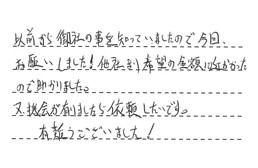 以前から御社の事を知っていましたので今回、
お願いしました!他社より希望の金額に近かった
ので助かりました。
又機会が有りましたら依頼したいです。
有難うございました!